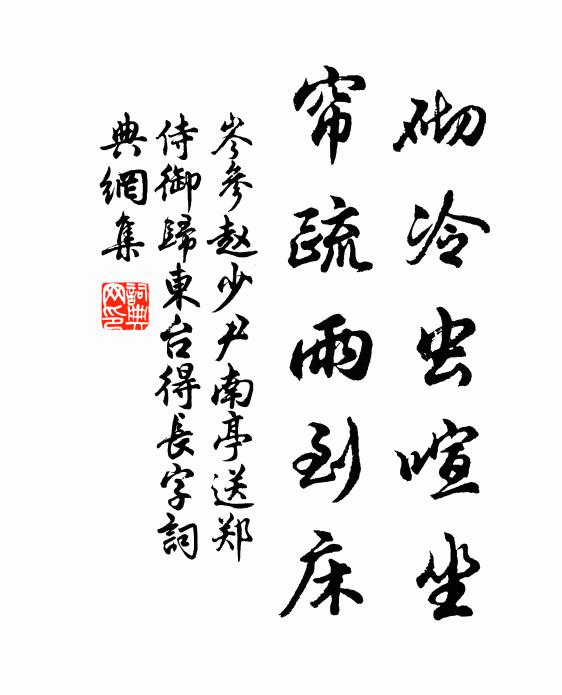 砌冷虫喧坐
帘疏雨到床
岑参赵少尹南亭送郑
侍御歸東台得長字詞
典網集
詞典
网印